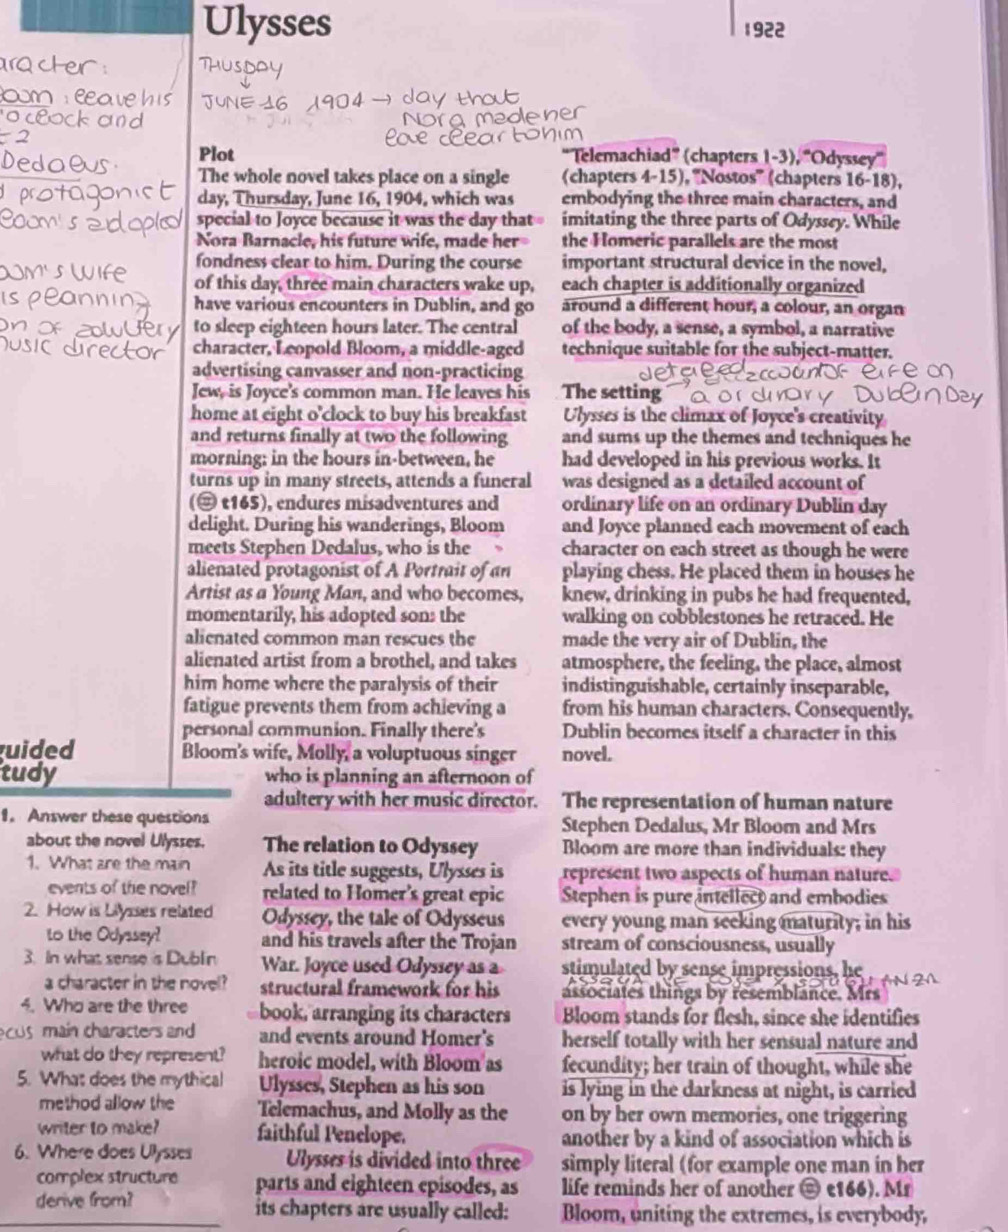 Ulysses
1922
THUSDAY
JUNE 16 1904 → day that
Nora madener
eove cleear to him
aracter:
oom: leeave his
o'clock and
Dedaeus.
protagonist
eoom's adopted
oom's wife
is peanning
on of adultery
music director
Plot
The whole novel takes place on a single
day, Thursday, June 16, 1904, which was
special to Joyce because it was the day that
Nora Barnacle, his future wife, made her
fondness clear to him. During the course
of this day, three main characters wake up,
have various encounters in Dublin, and go
to sleep eighteen hours later. The central
character, Leopold Bloom, a middle-aged
advertising canvasser and non-practicing
Jew, is Joyce's common man. He leaves his
home at eight o'clock to buy his breakfast
and returns finally at two the following
morning; in the hours in-between, he
turns up in many streets, attends a funeral
(t165), endures misadventures and
delight. During his wanderings, Bloom
meets Stephen Dedalus, who is the
alienated protagonist of A Portrait of an
Artist as a Young Man, and who becomes,
momentarily, his adopted son: the
alienated common man rescues the
alienated artist from a brothel, and takes
him home where the paralysis of their
fatigue prevents them from achieving a
personal communion. Finally there's
Bloom's wife, Molly, a voluptuous singer
who is planning an afternoon of
adultery with her music director.
The relation to Odyssey
As its title suggests, Ulysses is
related to Homer's great epic
Odyssey, the tale of Odysseus
and his travels after the Trojan
War. Joyce used Odyssey as a
structural framework for his
book, arranging its characters
and events around Homer's
heroic model, with Bloom as
Ulysses, Stephen as his son
Telemachus, and Molly as the
faithful Penelope.
Ulysses is divided into three
parts and eighteen episodes, as
its chapters are usually called:
"Telemachiad" (chapters 1-3), "Odyssey"
(chapters 4-15), "Nostos" (chapters 16-18),
embodying the three main characters, and
imitating the three parts of Odyssey. While
the Homeric parallels are the most
important structural device in the novel,
each chapter is additionally organized
around a different hour, a colour, an organ
of the body, a sense, a symbol, a narrative
technique suitable for the subject-matter.
detaieed account of eife on
a ordinary Dubein Day
The setting
Ulysses is the climax of Joyce's creativity
and sums up the themes and techniques he
had developed in his previous works. It
was designed as a detailed account of
ordinary life on an ordinary Dublin day
and Joyce planned each movement of each
character on each street as though he were
playing chess. He placed them in houses he
knew, drinking in pubs he had frequented,
walking on cobblestones he retraced. He
made the very air of Dublin, the
atmosphere, the feeling, the place, almost
indistinguishable, certainly inseparable,
from his human characters. Consequently,
Dublin becomes itself a character in this
novel.
The representation of human nature
Stephen Dedalus, Mr Bloom and Mrs
Bloom are more than individuals: they
represent two aspects of human nature.
Stephen is pure intellect and embodies
every young man seeking maturity; in his
stream of consciousness, usually
stimulated by sense impressions, he
associates things by resemblance. Mrs
Bloom stands for flesh, since she identifies
herself totally with her sensual nature and
fecundity; her train of thought, while she
is lying in the darkness at night, is carried
on by her own memories, one triggering
another by a kind of association which is
simply literal (for example one man in her
life reminds her of another t166). Mr
Bloom, uniting the extremes, is everybody,
guided
tudy
1. Answer these questions
about the novel Ulysses.
1. What are the main
events of the novel?
2. How is Ulysses related
to the Odyssey?
3. In what sense is Dublin
a character in the novel?
4. Who are the three
main characters and
what do they represent?
5. What does the mythical
method allow the
writer to make?
6. Where does Ulysses
complex structure
derive from?